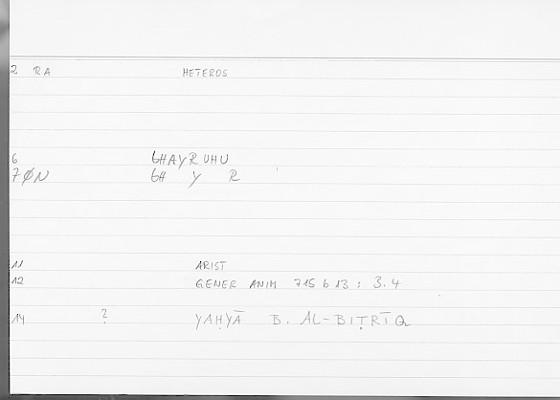 2 RA HETEROS
6 GHAYRUHU
7 ØN GH Y R
11 ARIST
12 GENER ANIM 715 b 13 : 3.4
14 ? YAḤYĀ B. AL-BIṬRĪQ